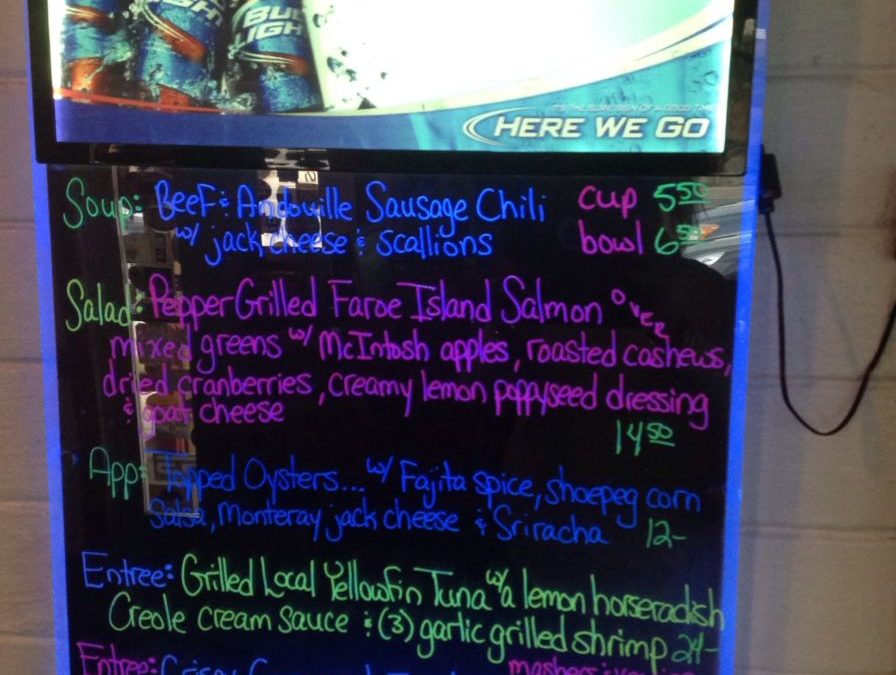 BUD LIGHT
IT'S THE SURE SIGN OF A GOOD TIME
HERE WE GO
Soup: Beef & Andouille Sausage Chili cup 5 50
w/ jack cheese & scallions bowl 6 50
Salad: Pepper Grilled Faroe Island Salmon OVER
mixed greens w/ McIntosh apples, roasted cashews,
dried cranberries, creamy lemon poppyseed dressing
& goat cheese
14 50
App: Topped Oysters... w/ Fajita spice, shoepeg corn
Salsa, Monteray jack cheese & Sriracha 12-
Entree: Grilled Local Yellowfin Tuna w/ a lemon horseradish
Creole cream sauce & (3) garlic grilled shrimp 24-
Entree: Crispy